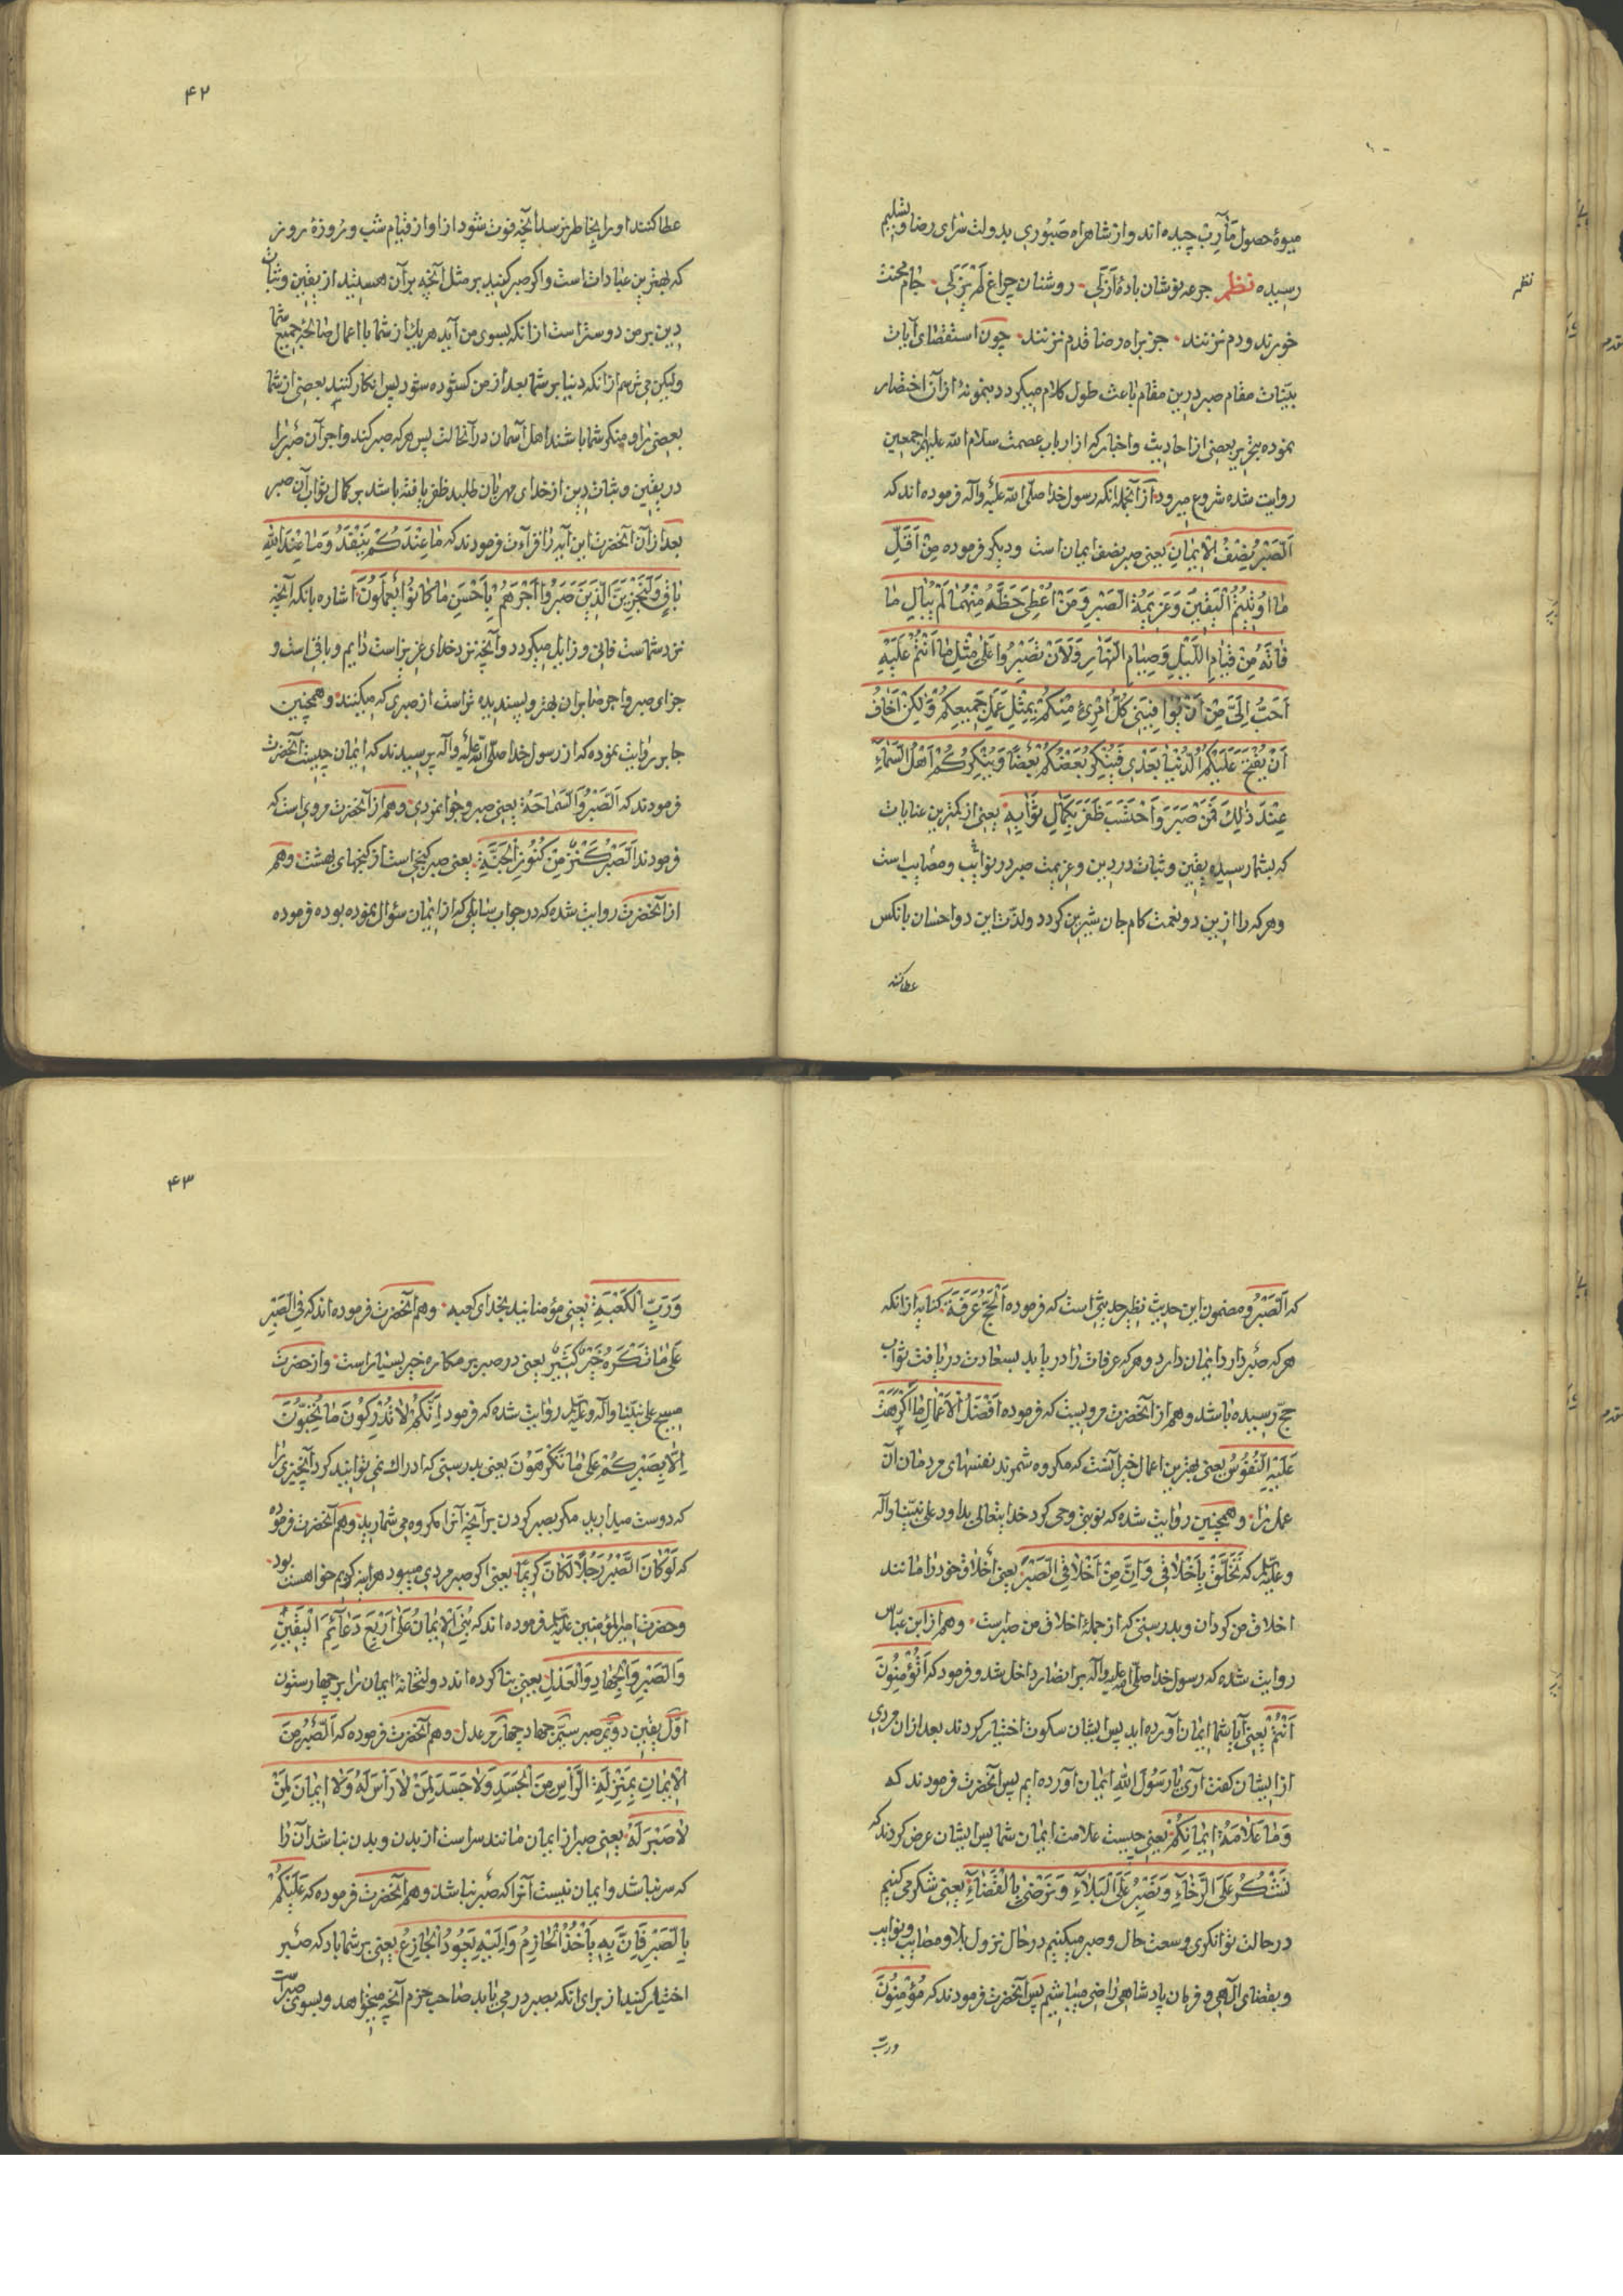 میوهٔ حصول مآرب چیده‌اند و از شاهراه صبوری بدولت سرای رضا و تسلیم
رسیده نظم جرعه نوشان بادهٔ ازلی روشنان چراغ لم یزلی جام محنت
نظم
خورند و دم نزنند جز براه رضا قدم نزنند چون استقصای آیات
بینات مقام صبر درین مقام باعث طول کلام میکردد بنمونهٔ از آن اختصار
نموده بتحریر بعضی از احادیث و اخبار که از ارباب عصمت سلام الله علیهم اجمعین
روایت شده شروع میرود از آنجمله آنکه رسول خدا صلی الله علیه وآله فرموده‌اند که
اَلصَّبْرُ نِصْفُ الْاِیمَانِ یعنی صبر نصف ایمان است و دیکر فرموده مِنْ اَقَلِّ
مَا اُوتِیتُمُ الْیَقِینَ وَعَزِیمَةُ الصَّبْرِ وَمَنْ اُعْطِیَ حَظَّهُ مِنْهُمَا لَمْ یُبَالِ مَا
فَاتَهُ مِنْ قِیَامِ اللَّیْلِ وَصِیَامِ النَّهَارِ وَلَاَنْ تَصْبِرُوا عَلَی مِثْلِ مَا اَنْتُمْ عَلَیْهِ
اَحَبُّ اِلَیَّ مِنْ اَنْ یُوَافِیَنِی کُلُّ امْرِئٍ مِنْکُمْ بِمِثْلِ عَمَلِ جَمِیعِکُمْ وَلٰکِنْ اَخَافُ
اَنْ یُفْتَحَ عَلَیْکُمُ الدُّنْیَا بَعْدِی فَیُنْکِرَ بَعْضُکُمْ بَعْضًا وَیُنْکِرَکُمْ اَهْلُ السَّمَاءِ
عِنْدَ ذٰلِکَ فَمَنْ صَبَرَ وَاحْتَسَبَ ظَفَرَ بِکَمَالِ ثَوَابِهِ یعنی از کمترین عنایات
که بشما رسیده یقین و ثبات در دین و عزیمت صبر در نوائب و مصایب است
و هر که را ازین دو نعمت کام جان شیرین کردد و لذت این دو احسان بانکس
عطا کنند
۴۲
عطا کنند او را بخاطر نرسد آنچه فوت شود از او از قیام شب و روزهٔ روز
که بهترین عبادات است و اکر صبر کنید بر مثل آنچه بر آن هستید از یقین و ثبات
دین بر من دوستر است از انکه بسوی من آید هر یک از شما با اعمال صالحهٔ جمیع شما
ولیکن می‌ترسم از انکه دنیا بر شما بعد از من کشوده شود پس انکار کنید بعضی از شما
بعضی را و منکر شما باشند اهل آسمان در آنحالت پس هر که صبر کند و اجر آن صبر را
در یقین و ثبات دین از خدای مهربان طلبد ظفر یافته باشد بر کمال ثواب آن صبر
بعد از آن آنحضرت این آیه را قرآءت فرمودند که مَا عِنْدَکُمْ یَنْفَدُ وَمَا عِنْدَ اللهِ
بَاقٍ وَلَنَجْزِیَنَّ الَّذِینَ صَبَرُوا اَجْرَهُمْ بِاَحْسَنِ مَا کَانُوا یَعْمَلُونَ اشاره بانکه آنچه
نزد شماست فانی و زایل میکردد و آنچه نزد خدای عزیز است دایم و باقی است و
جزای صبر و اجر صابران بهتر و پسندیده تر است از صبری که میکنند و همچنین
جابر روایت نموده که از رسول خدا صلی الله علیه وآله پرسیدند که ایمان چیست آنحضرت
فرمودند که اَلصَّبْرُ وَالسَّمَاحَةُ یعنی صبر و جوانمردی و هم از آنحضرت مرویست که
فرمودند اَلصَّبْرُ کَنْزٌ مِنْ کُنُوزِ الْجَنَّةِ یعنی صبر کنجی است از کنجهای بهشت و هم
از آنحضرت روایت شده که در جواب سایلی که از ایمان سؤال نموده بوده فرموده
که اَلصَّبْرُ و مضمون این حدیث نظیر حدیثی است که فرموده اَلْحَجُّ عَرَفَةُ کنایه از انکه
هر که صبر دارد ایمان دارد و هر که عرفات را دریابد بسعادت دریافت ثواب
حج رسیده باشد و هم از آنحضرت مرویست که فرموده اَفْضَلُ الْاَعْمَالِ مَا اُکْرِهَتْ
عَلَیْهِ النُّفُوسُ یعنی بهترین اعمال خیر آنست که مکروه شمرند نفسهای مردمان آن
عمل را و همچنین روایت شده که نوبتی وحی کرد خدایتعالی بداود علی نبینا وآله
وعلیه که تَخَلَّقْ بِاَخْلَاقِی وَاِنَّ مِنْ اَخْلَاقِی الصَّبْرَ یعنی اخلاق خود را مانند
اخلاق من کردان و بدرستی که از جملهٔ اخلاق من صبر است و هم از ابن عباس
روایت شده که رسول خدا صلی الله علیه وآله بر انصار داخل شد و فرمود که اَمُؤْمِنُونَ
اَنْتُمْ یعنی آیا شما ایمان آورده‌اید پس ایشان سکوت اختیار کردند بعد از ان مردی
از ایشان کفت آری یا رَسُولَ اللهِ ایمان آورده‌ایم پس آنحضرت فرمودند که
وَمَا عَلَامَةُ اِیمَانِکُمْ یعنی چیست علامت ایمان شما پس ایشان عرض کردند که
نَشْکُرُ عَلَی الرَّخَاءِ وَنَصْبِرُ عَلَی الْبَلَاءِ وَنَرْضَی بِالْقَضَاءِ یعنی شکر می‌کنیم
در حالت توانکری و وسعت حال و صبر میکنیم در حال نزول بلا و مصایب و نوایب
و بقضای الهی و فرمان پادشاهی راضی میباشیم پس آنحضرت فرمودند که مُؤْمِنُونَ
ورب
۴۳
وَرَبِّ الْکَعْبَةِ یعنی مؤمنانید بخدای کعبه و هم آنحضرت فرموده‌اند که فِی الصَّبْرِ
عَلَی مَا تَکْرَهُ خَیْرٌ کَثِیرٌ یعنی در صبر بر مکاره خیر بسیار است و از حضرت
مسیح علی نبینا وآله وعلیه روایت شده که فرمود اِنَّکُمْ لَا تُدْرِکُونَ مَا تُحِبُّونَ
اِلَّا بِصَبْرِکُمْ عَلَی مَا تَکْرَهُونَ یعنی بدرستی که ادراک نمی‌توانید کرد آنچیزی را
که دوست میدارید مکر بصبر کردن بر آنچه آنرا مکروه می شمارید و هم آنحضرت فرموده
که لَوْ کَانَ الصَّبْرُ رَجُلًا لَکَانَ کَرِیمًا یعنی اکر صبر مردی میبود هر اینه کریم خواهست بود
و حضرت امیر المؤمنین علیه فرموده‌اند که بُنِیَ الْاِیمَانُ عَلَی اَرْبَعِ دَعَائِمَ الْیَقِینِ
وَالصَّبْرِ وَالْجِهَادِ وَالْعَدْلِ یعنی بنا کرده‌اند دولتخانهٔ ایمان را بر چهار ستون
اوّل یقین دویّم صبر سیّم جهاد چهارم عدل و هم آنحضرت فرموده که اَلصَّبْرُ مِنَ
الْاِیمَانِ بِمَنْزِلَةِ الرَّأْسِ مِنَ الْجَسَدِ وَلَا جَسَدَ لِمَنْ لَا رَأْسَ لَهُ وَلَا اِیمَانَ لِمَنْ
لَا صَبْرَ لَهُ یعنی صبر از ایمان مانند سر است از بدن و بدن نباشد آن را
که سر نباشد و ایمان نیست آنرا که صبر نباشد و هم آنحضرت فرموده که عَلَیْکُمْ
بِالصَّبْرِ فَاِنَّ بِهِ یَأْخُذُ الْحَازِمُ وَاِلَیْهِ یَعُودُ الْجَازِعُ یعنی بر شما باد که صبر
اختیار کنید از برای انکه بصبر درمی‌یابد صاحب حزم آنچه میخواهد و بسوی صبر است